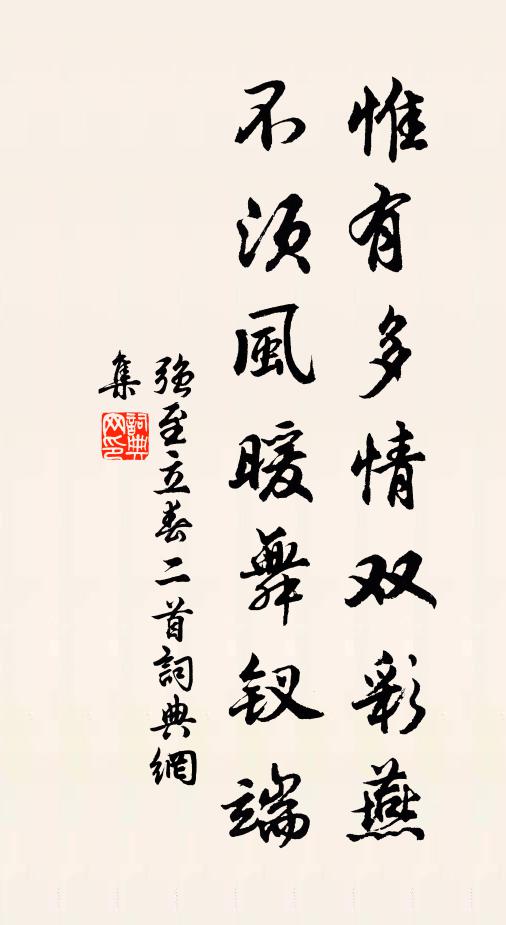 惟有多情双彩燕
不须風暖舞钗端
强至立春二首詞典網
集
詞典
网印